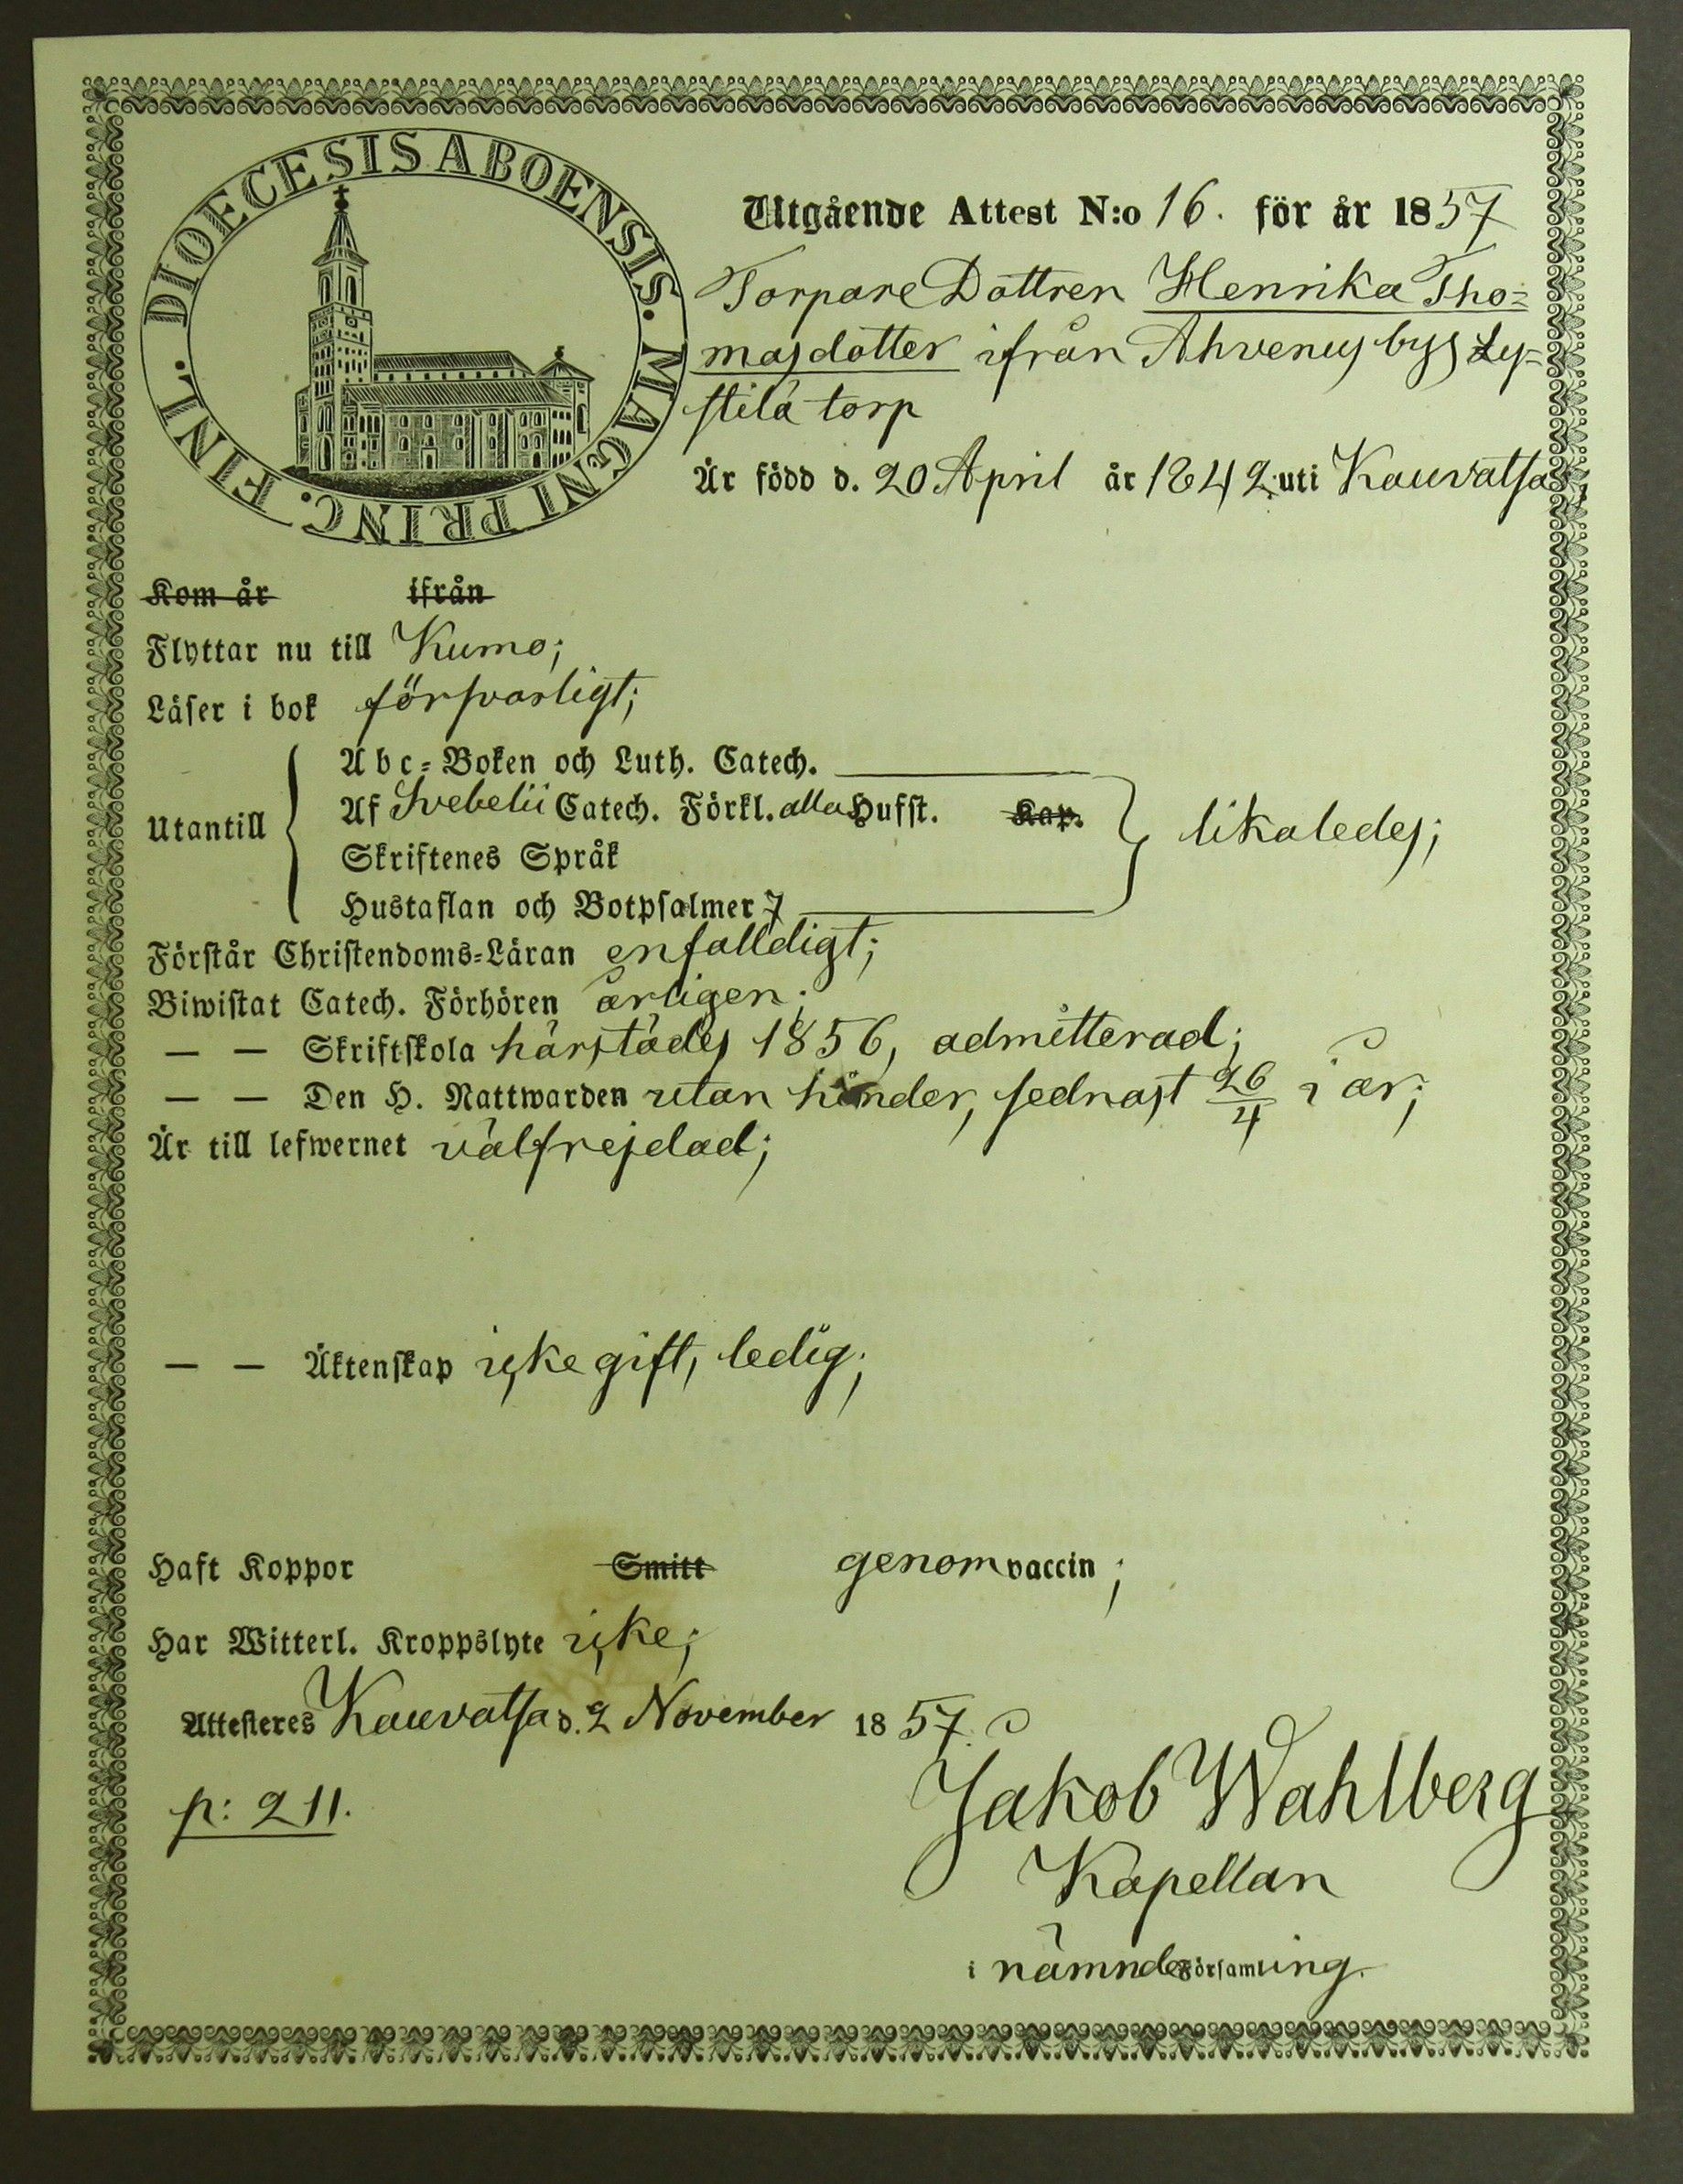 DIOECESIS ABOENSIS. MAGNI PRINC. FINL.
Utgående Attest N:o 16. för år 1857
Torpare Dottren Henrika Tho=
masdotter ifrån Ahvenus bys Ly=
stilä torp
Är född d. 20 April år 1842 uti Kauvatsa;
Kom år ifrån
Flyttar nu till Kumo;
Läser i bok försvarligt;
Utantill
Abc=Boken och Luth. Catech.
Af Svebelii Catech. Förkl. alla Hufst. Kap.
Skriftenes Språk
Hustaflan och Botpsalmer 7
likaledes;
Förstår Christendoms=Läran enfalldigt;
Biwistat Catech. Förhören årligen;
— — Skriftskola härstädes 1856, admitterad;
— — Den H. Nattwarden utan hinder, sednast 26/4 i år;
Är till lefwernet välfrejdad;
— — Äktenskap icke gift, ledig;
Haft Koppor Smitt genom vaccin;
Har Witterl. Kroppslyte icke;
Attesteres Kauvatsa d. 2 November 1857.
p: 211.
Jakob Wahlberg
Kapellan
i nämnde Församling.